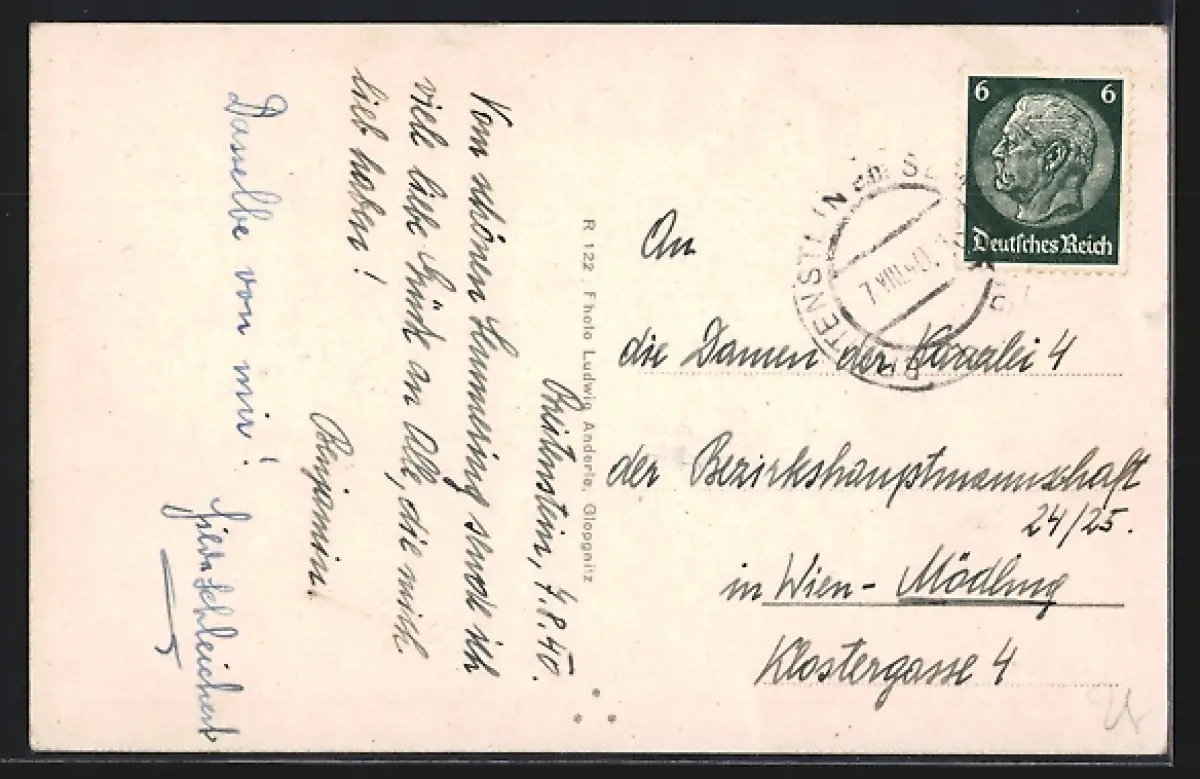 Breitenstein, 7.8.40.
Vom schönen Semmering sende ich
viele liebe Grüße an Alle, die mich
lieb haben!
Benjamin.
Dasselbe von mir!
Schleichert
R 122 Photo Ludwig Anderle, Gloggnitz
6 6
Deutsches Reich
BREITENSTEIN am
7.VIII.40
An
die Damen der Kanzlei 4
der Bezirkshauptmannschaft
24/25.
in Wien-Mödling
Klostergasse 4